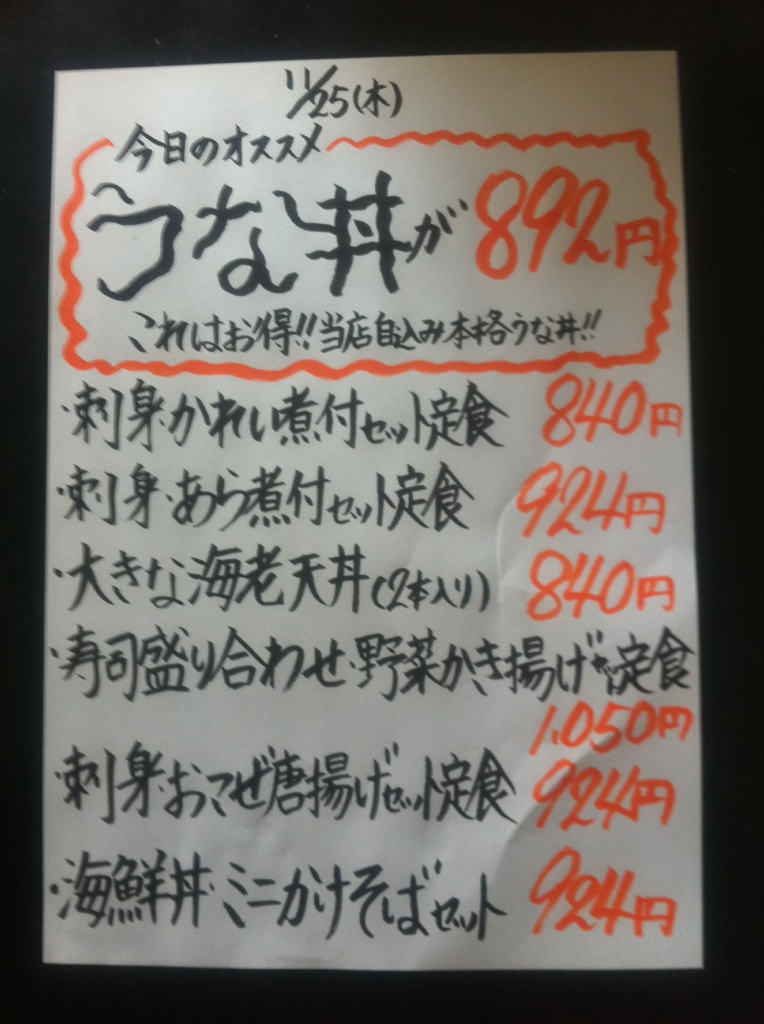 11/25(木)
今日のオススメ
うな丼が 892円
これはお得!!当店自込み本格うな丼!!
・刺身・かれい煮付セット定食 840円
・刺身・あら煮付セット定食 924円
・大きな海老天丼(2本入り) 840円
・寿司盛り合わせ・野菜かき揚げセット定食
1,050円
・刺身・おこぜ唐揚げセット定食 924円
・海鮮丼・ミニかけそばセット 924円